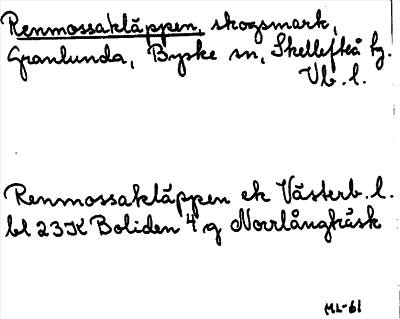 Renmossakläppen, skogsmark,
Granlunda, Byske sn, Skellefteå tg.
Vb. l.
Renmossakläppen ek Västerb. l.
bl 23K Boliden 4 g Norrlångträsk
ML-61